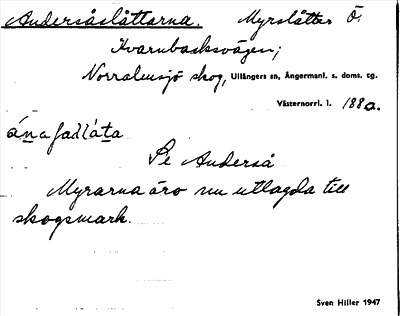 Andersåslåttarna. Myrslåtter Ö.
Kvarnbacksvägen;
Norralensjö skog, Ullångers sn, Ångermanl. s. doms. tg.
Västernorrl. l. 188a.
Se Anderså
Myrarna äro nu utlagda till
skogsmark.
Sven Hiller 1947